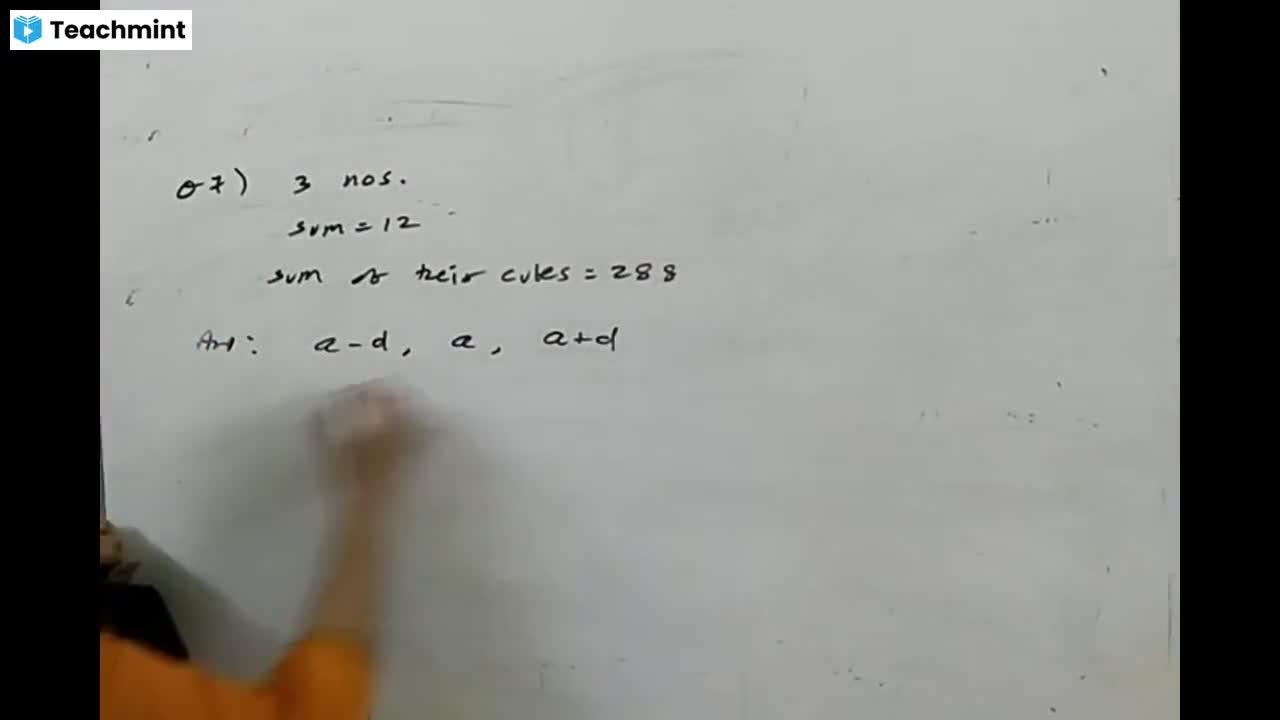 Teachmint
Q7) 3 nos.
sum = 12
sum of their cubes = 288
Ans: a-d, a, a+d